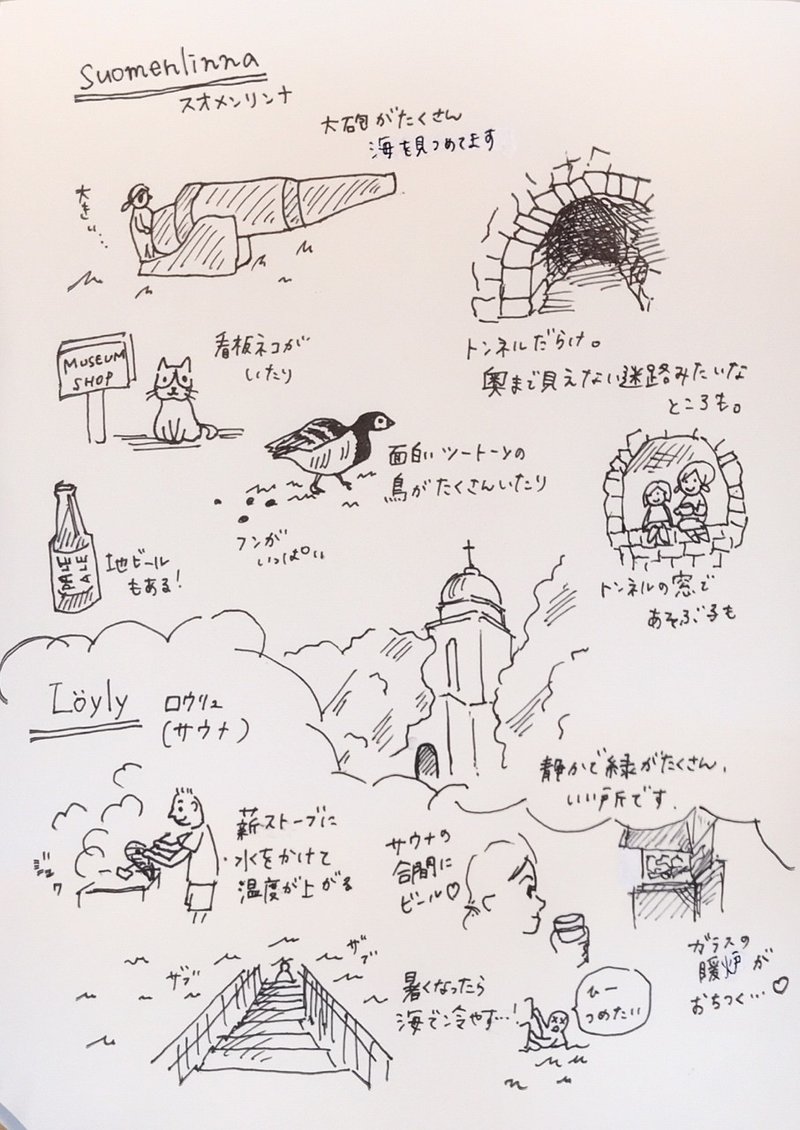 Suomenlinna
スオメンリンナ
大砲がたくさん
海を見つめてます
大きい…
MUSEUM
SHOP
看板ネコが
いたり
トンネルだらけ。
奥まで見えない迷路みたいな
ところも。
面白いツートーンの
鳥がたくさんいたり
フンが
いっぱい
PALE
ALE
地ビール
もある!
トンネルの窓で
あそぶ子も
Löyly
ロウリュ
(サウナ)
静かで緑がたくさん、
いい所です.
薪ストーブに
水をかけて
温度が上がる
サウナの
合間に
ビール♡
ガラスの
暖炉が
おちつく…♡
ザブ
ザブ
暑くなったら
海で冷やす…!
ひー
つめたい